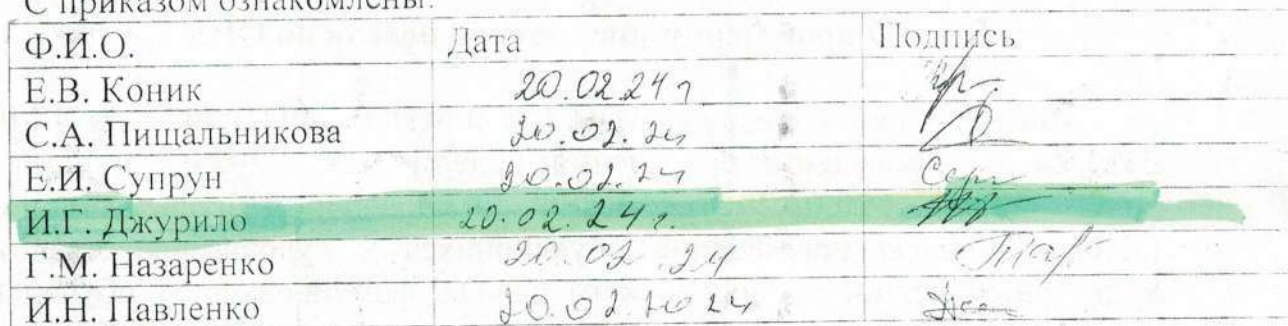 С приказом ознакомлены:
Ф.И.О. Дата Подпись
Е.В. Коник 20.02.24 г
С.А. Пищальникова 20.02.24
Е.И. Супрун 20.02.24
И.Г. Джурило 20.02.24 г.
Г.М. Назаренко 20.02.24
И.Н. Павленко 20.02.2024